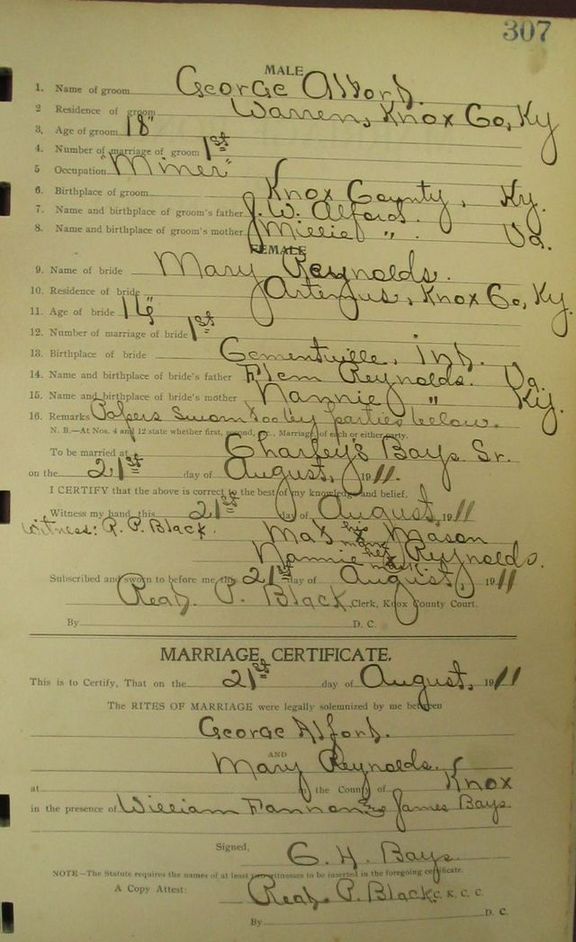 307
MALE
1. Name of groom George Alford.
2 Residence of groom Warren, Knox Co, Ky
3. Age of groom 18"
4. Number of marriage of groom 1st
5 Occupation "Miner"
6. Birthplace of groom Knox County, Ky.
7. Name and birthplace of groom's father J. W. Alford.
8. Name and birthplace of groom's mother Millie " . Va.
FEMALE
9. Name of bride Mary Reynolds.
10. Residence of bride Artemus, Knox Co, Ky.
11. Age of bride
12. Number of marriage of bride 1st
13. Birthplace of bride Cementville, Ind.
14. Name and birthplace of bride's father Flem Reynolds. Va.
15. Name and birthplace of bride's mother Nannie " Ky.
16. Remarks Papers Sworn to by parties below.
N. B.—At Nos. 4 and 12 state whether first, second, etc., Marriage of each or either party.
To be married at Charley's Bays Sr.
on the 21st day of August, 1911.
I CERTIFY that the above is correct to the best of my knowledge and belief.
Witness my hand, this 21st day of August 1911
Witness: R. P. Black. Mat his x mark Mason
Nannie her x mark Reynolds.
Subscribed and sworn to before me, this 21st day of August, 1911
Read P. Black, Clerk, Knox County Court.
By D. C.
MARRIAGE CERTIFICATE.
This is to Certify, That on the 21st day of August, 1911
The RITES OF MARRIAGE were legally solemnized by me between
George Alford.
AND
Mary Reynolds.
at in the County of Knox
in the presence of William Fannon and James Bays
Signed, G. H. Bays.
NOTE—The Statute requires the names of at least two witnesses to be inserted in the foregoing certificate.
A Copy Attest: Read P. Black C. K. C. C.
By D. C.